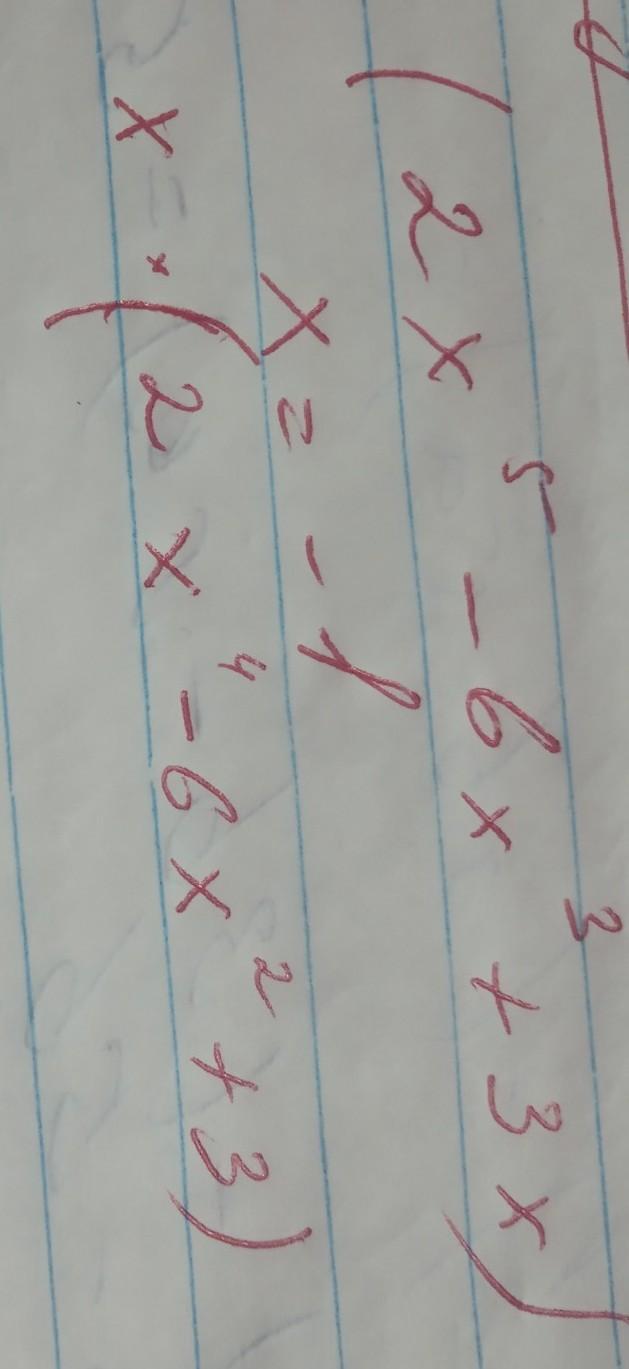 (2x⁵ - 6x³ + 3x)
x = -1
x = x(2x⁴ - 6x² + 3)